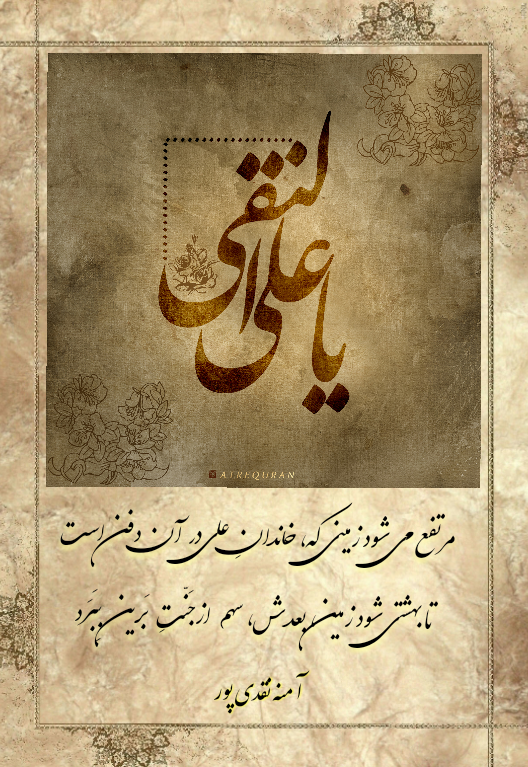 یا علی النقی
ATREQURAN
مرتفع می شود زمینی که، خاندانِ علی در آن دفن است
تا بهشتی شود زمین بعدش، سهم از جنّتِ بَرین ببَرد
آمنه نقدی پور